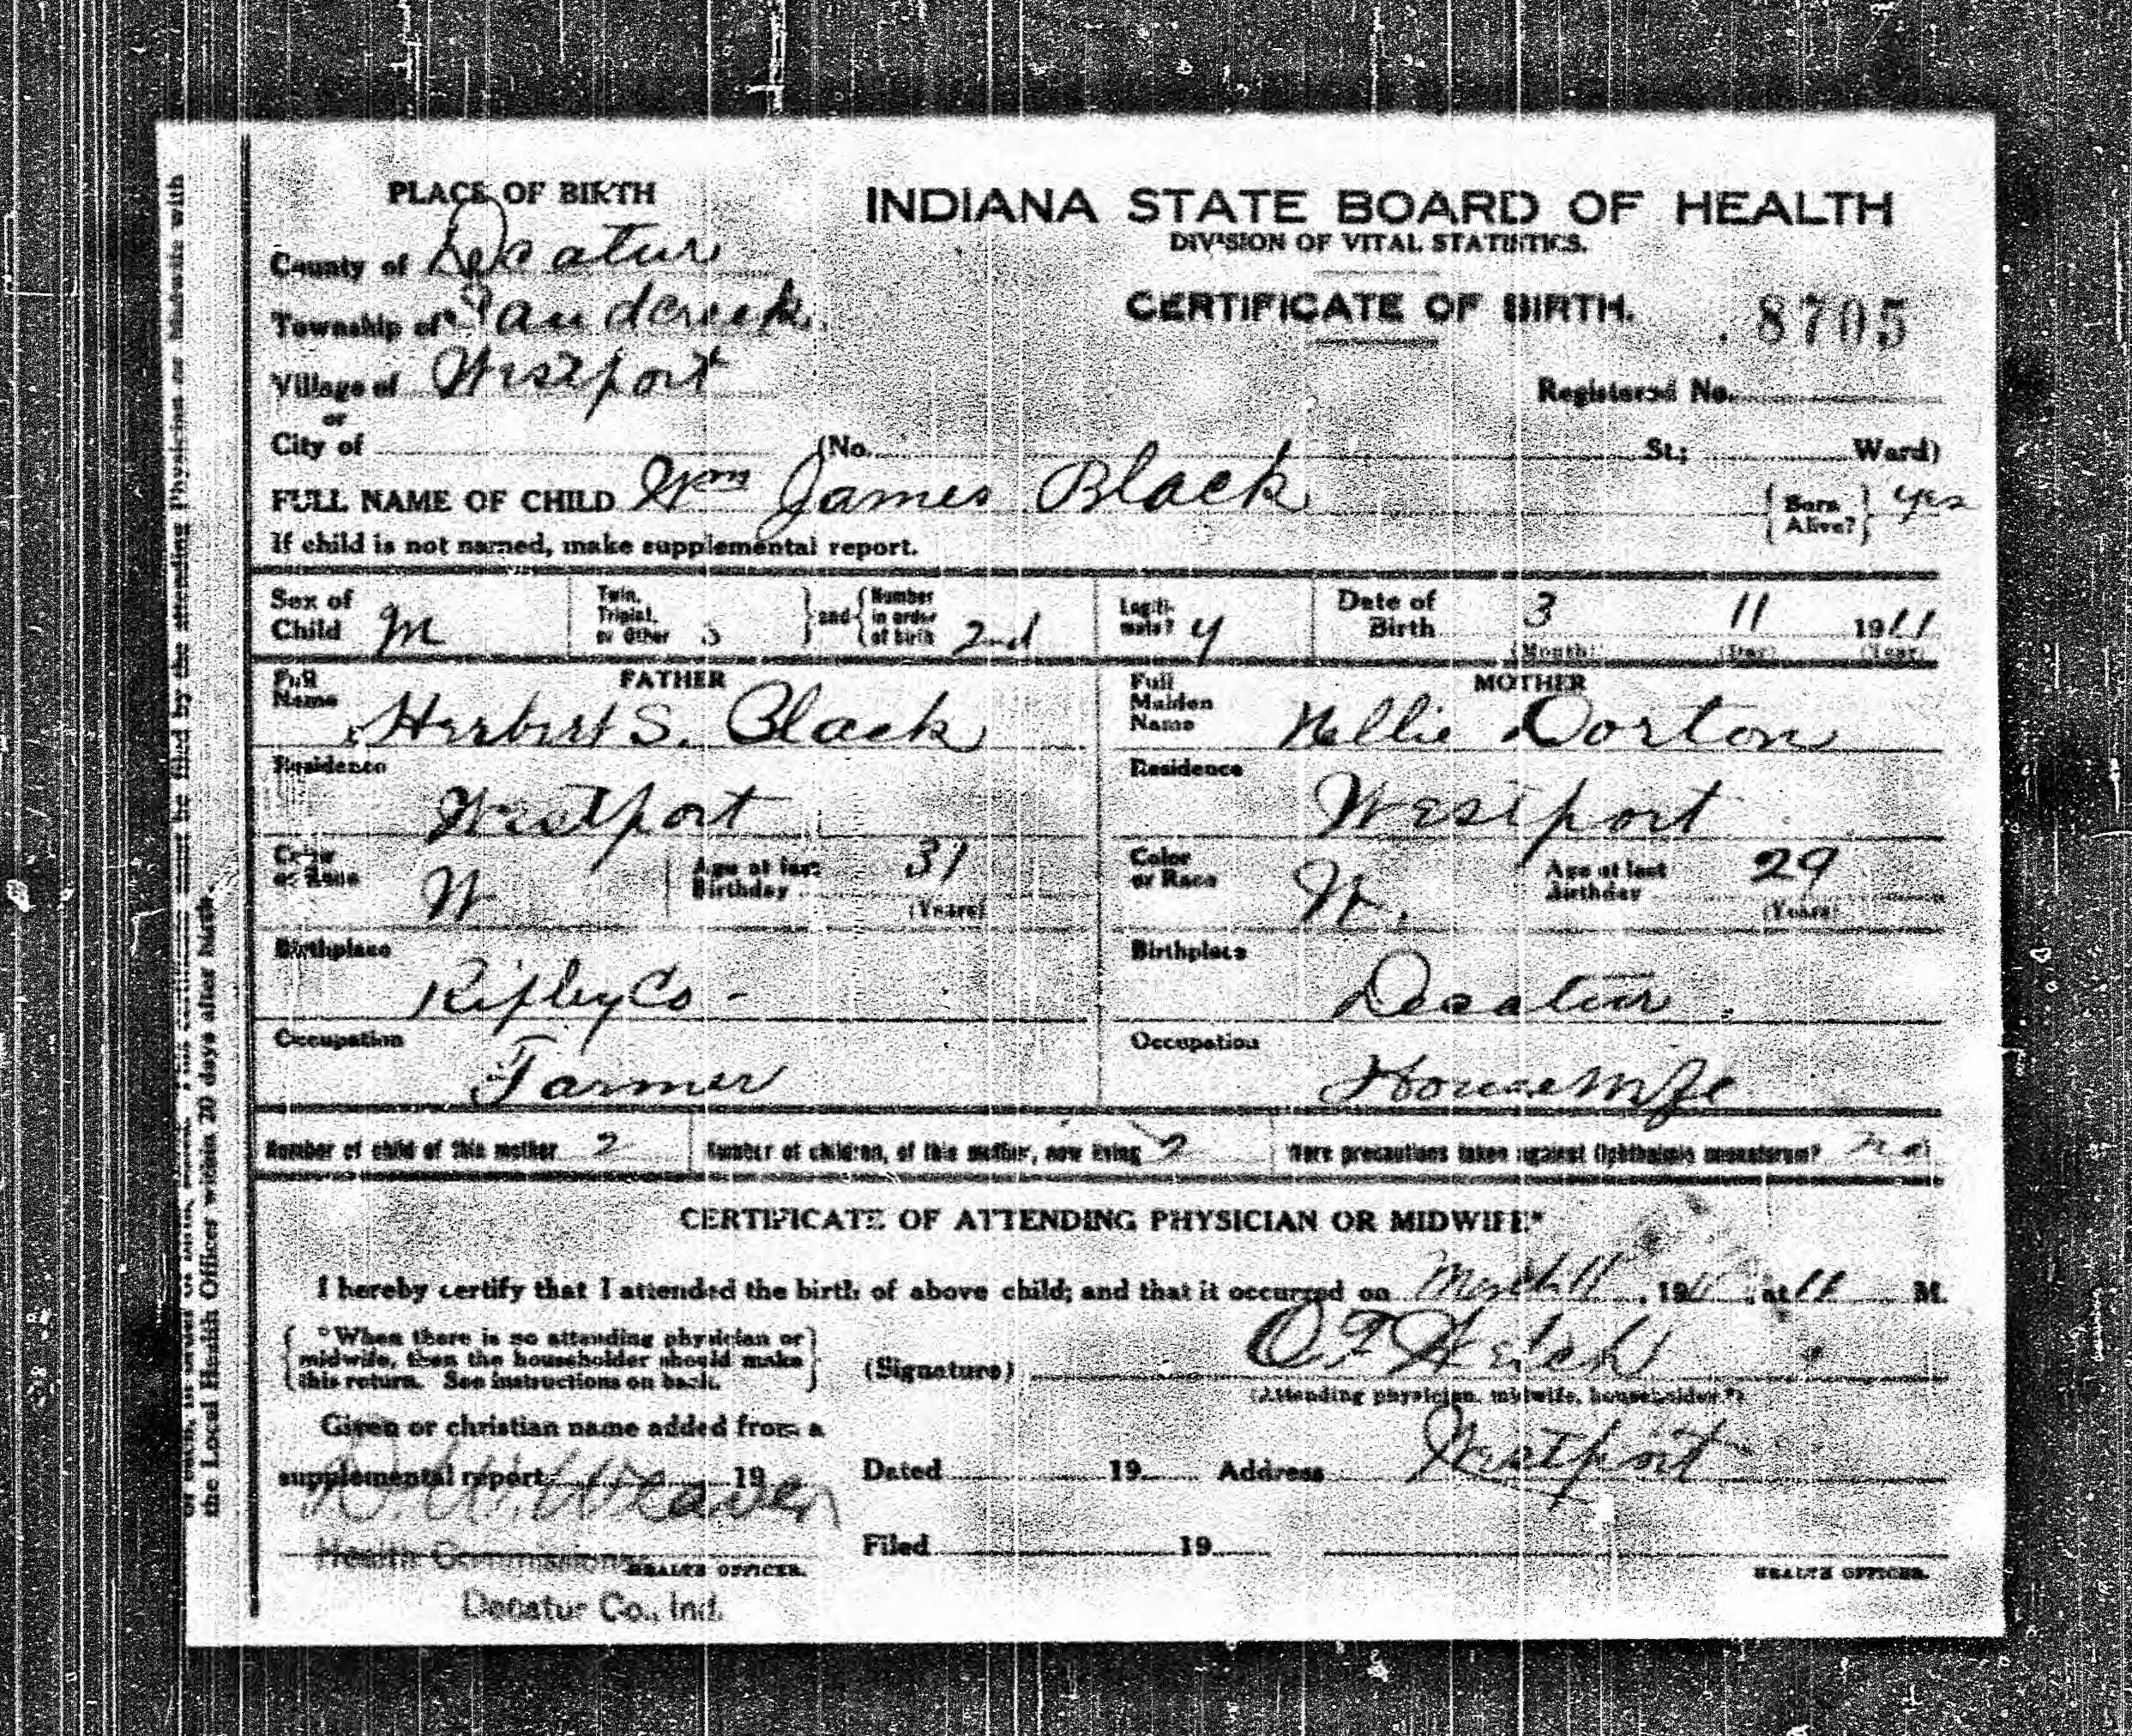 PLACE OF BIRTH
INDIANA STATE BOARD OF HEALTH
DIVISION OF VITAL STATISTICS.
County of Decatur
CERTIFICATE OF BIRTH.
8705
Township of Sandcreek
Village of Westport
Registered No.
or
City of (No. St.; Ward)
FULL NAME OF CHILD Wm James Black
Born Alive? yes
If child is not named, make supplemental report.
Sex of Child M
Twin, Triplet, or Other
and
Number in order of birth 2nd
Legitimate? y
Date of Birth 3 11 1911
(Month) (Day) (Year)
FATHER
Full Name Herbert S. Black
MOTHER
Full Maiden Name Nellie Dorton
Residence Westport
Residence Westport
Color or Race W
Age at last Birthday 31
(Years)
Color or Race W.
Age at last Birthday 29
(Years)
Birthplace Ripley Co -
Birthplace Decatur
Occupation Farmer
Occupation Housewife
Number of child of this mother 2
Number of children, of this mother, now living 2
Were precautions taken against Ophthalmia neonatorum? no
CERTIFICATE OF ATTENDING PHYSICIAN OR MIDWIFE*
I hereby certify that I attended the birth of above child; and that it occurred on March 11, 1911, at 11 M.
*When there is no attending physician or
midwife, then the householder should make
this return. See instructions on back.
(Signature) O F Welch
(Attending physician, midwife, householder.*)
Given or christian name added from a
supplemental report 19
Dated 19 Address Westport
Weaver
Filed 19
Health Commissioner
HEALTH OFFICER.
HEALTH OFFICER.
Decatur Co., Ind.
be filed by the attending Physician or Midwife with
the Local Health Officer within 20 days after birth.